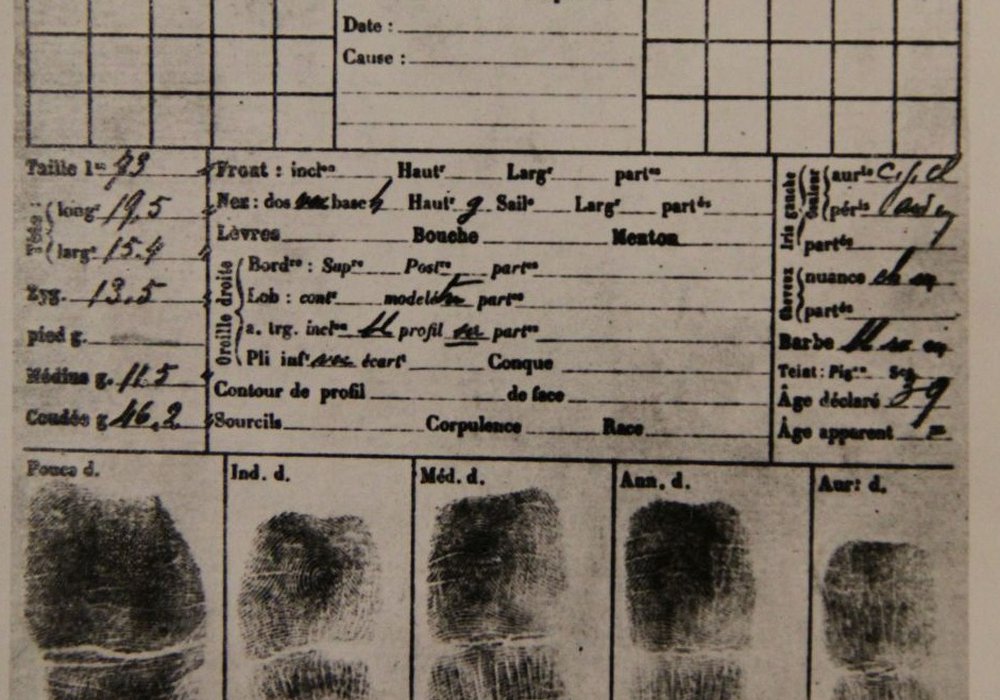 Date :
Cause :
Taille 1ᵐ 73
Tête
long^r 19,5
larg^r 15.4
Zyg. 13.5
pied g.
Médius g. 11.5
Coudée g 46.2
Front : incl^on Haut^r Larg^r part^és
Nez : dos base h Haut^r g Sail^e Larg^r part^és
Lèvres Bouche Menton
Oreille droite
Bord^re : Sup^re Post^re part^és
Lob : cont^r modelé part^és
a. trg. incl^on profil part^és
Pli inf^r écart^t Conque
Contour de profil de face
Sourcils Corpulence Race
Iris gauche
Couleur
aur^le
pér^ie
part^és
Cheveux
nuance ch
part^és
Barbe
Teint : Pig^re Sg^ne
Âge déclaré 39
Âge apparent
Pouce d.
Ind. d.
Méd. d.
Ann. d.
Aur: d.